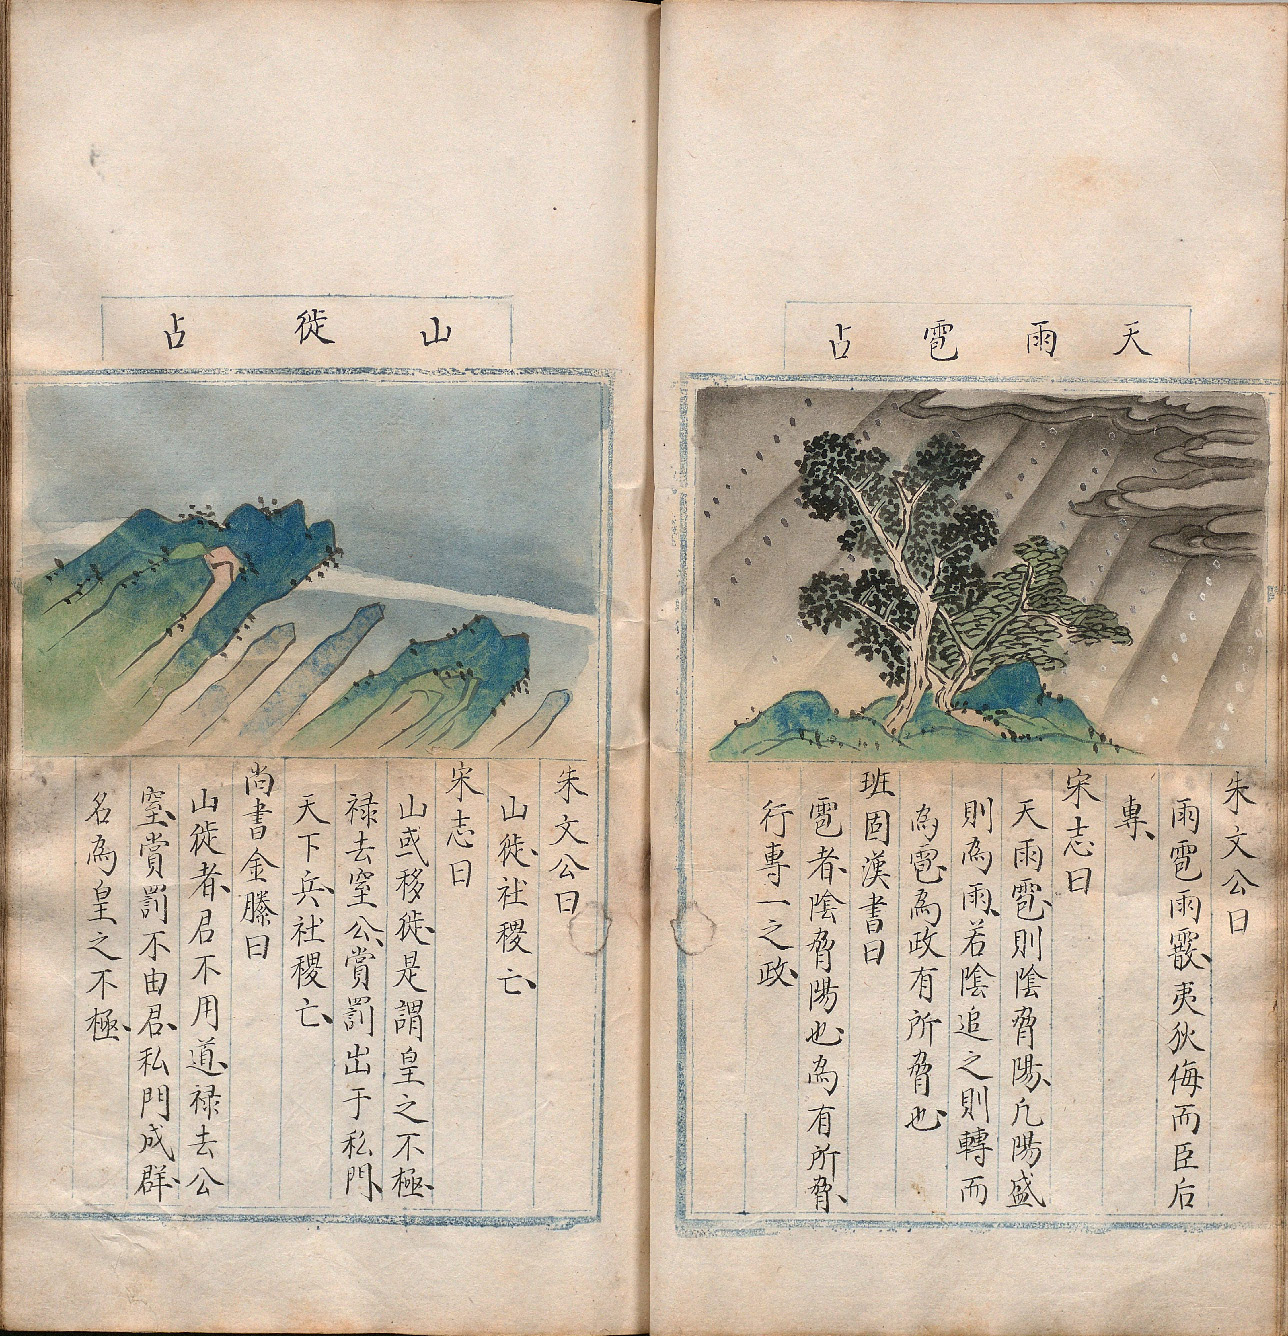 天雨雹占
朱文公曰
雨雹雨霰夷狄侮而臣后
專
宋志曰
天雨雹則陰脅陽凢陽盛
則為雨若陰追之則轉而
為雹為政有所脅也
班固漢書曰
雹者陰脅陽也為有所脅
行專一之政
山徙占
朱文公曰
山徙社稷亡
宋志曰
山或移徙是謂皇之不極
禄去室公賞罰出于私門
天下兵社稷亡
尚書金滕曰
山徙者君不用道禄去公
室賞罰不由君私門成群
名為皇之不極